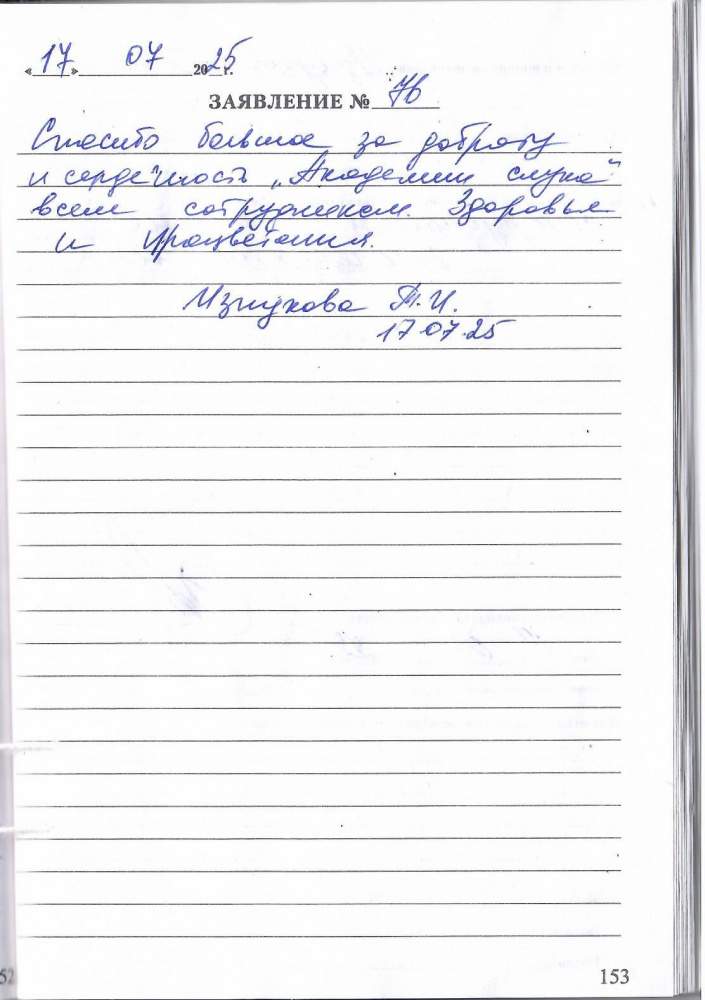 «17» 07 2025 г.
ЗАЯВЛЕНИЕ № 76
Спасибо большое за доброту
и сердечность „Академии слуха"
всем сотрудникам. Здоровья
и процветания.
Т.И.
17.07.25
153